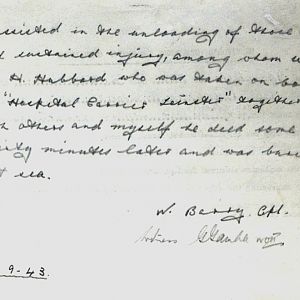 sisted in the unloading of those
sustained injury, among whom w
H. Hubbard who was taken on bo
"Hospital Carrier Leinster" together
h others and myself he died some
ty minutes later and was buri
t sea.
W. Berry. CH.
9-43.